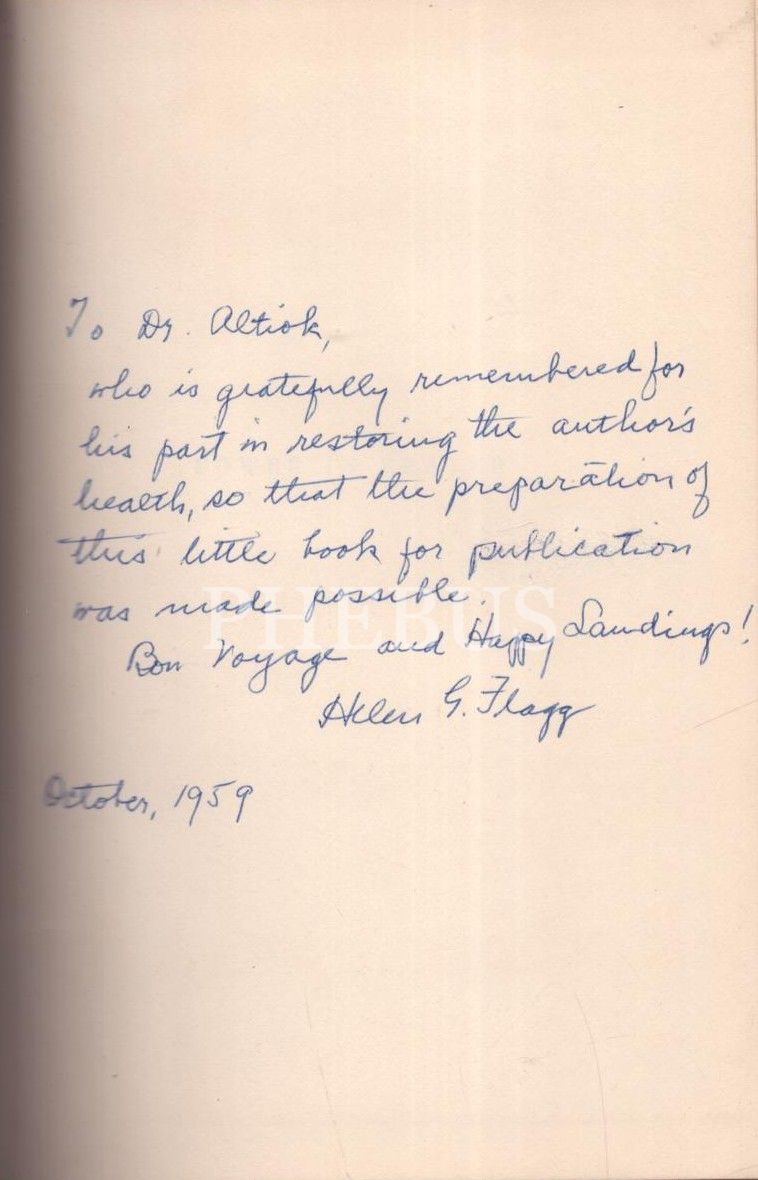 To Dr. Altiok,
who is gratefully remembered for
his part in restoring the author's
health, so that the preparation of
this little book for publication
was made possible.
PHEBUS
Bon Voyage and Happy Landings!
Helen G. Flagg
October, 1959